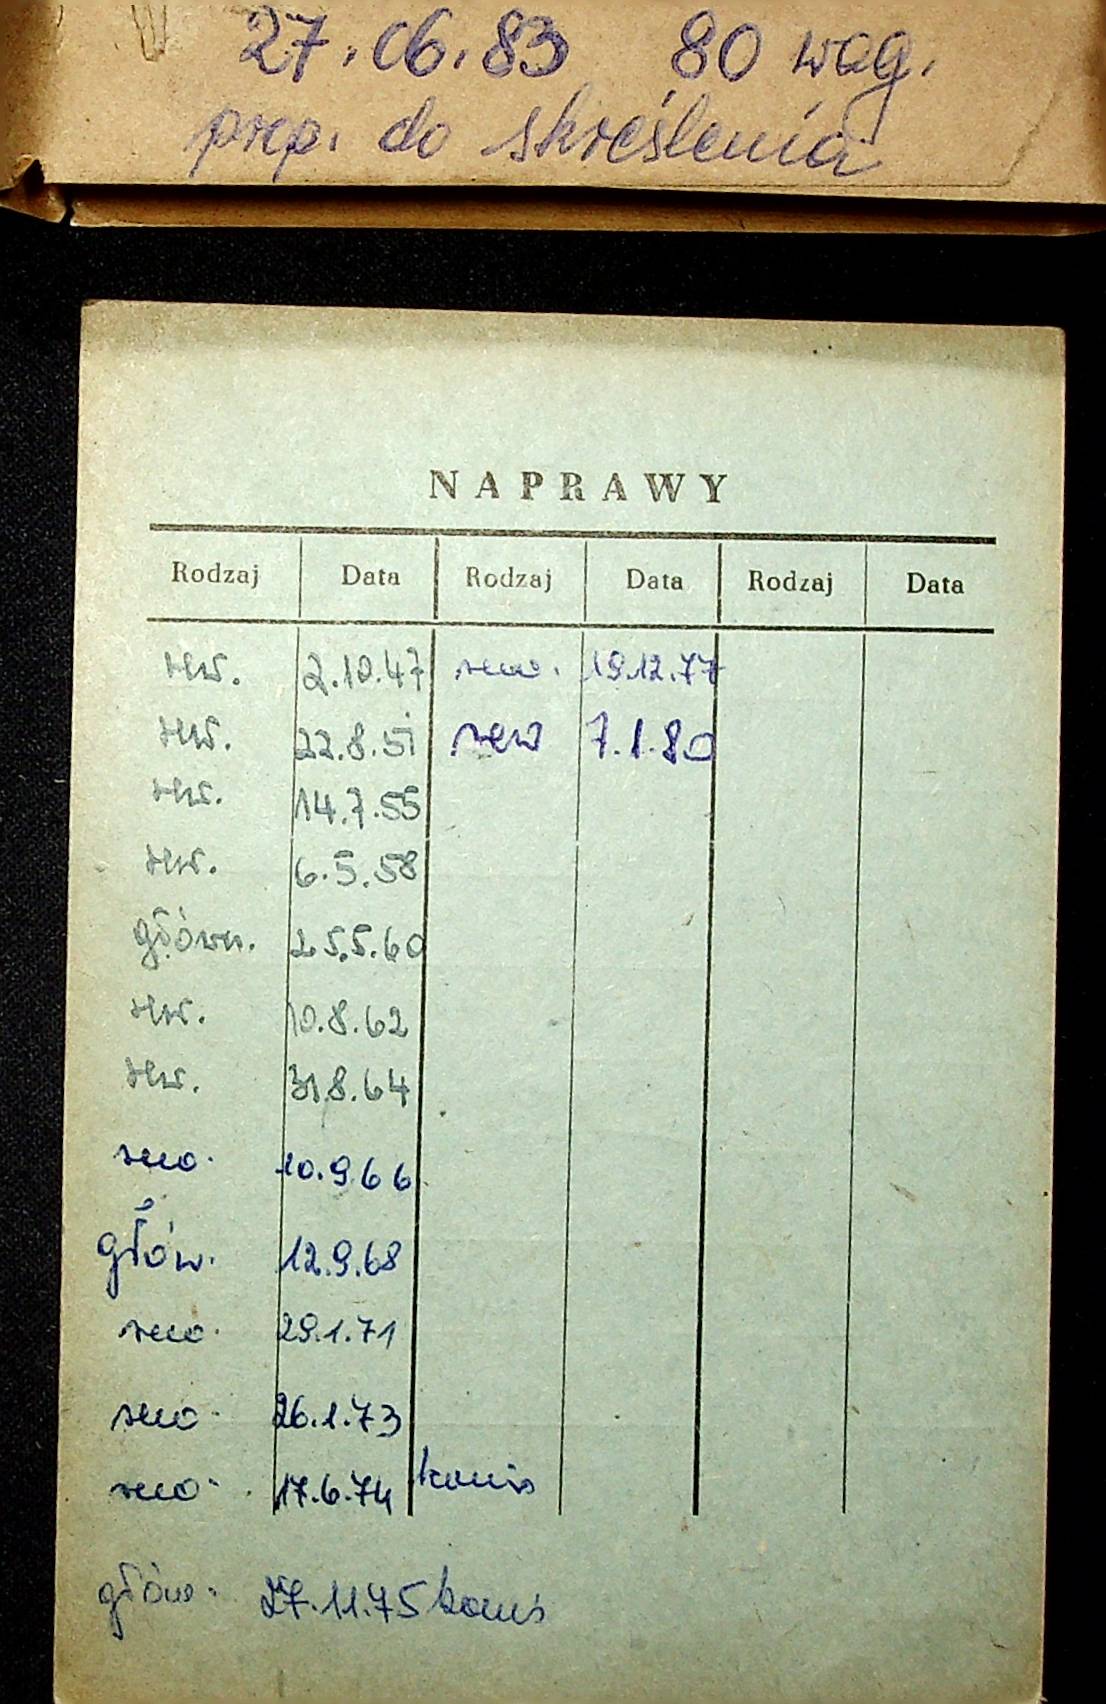 27.06.83 80 wag.
prep. do skreślenia
NAPRAWY
Rodzaj Data Rodzaj Data Rodzaj Data
rew. 2.10.47 rew. 19.12.77
rew. 22.8.51 rew 7.1.80
rew. 14.7.55
rew. 6.5.58
główn. 25.5.60
rew. 10.8.62
rew. 31.8.64
rew. 10.9.66
głów. 12.9.68
rew. 29.1.71
rew. 26.1.73
rew. 17.6.74
głów. 27.11.75